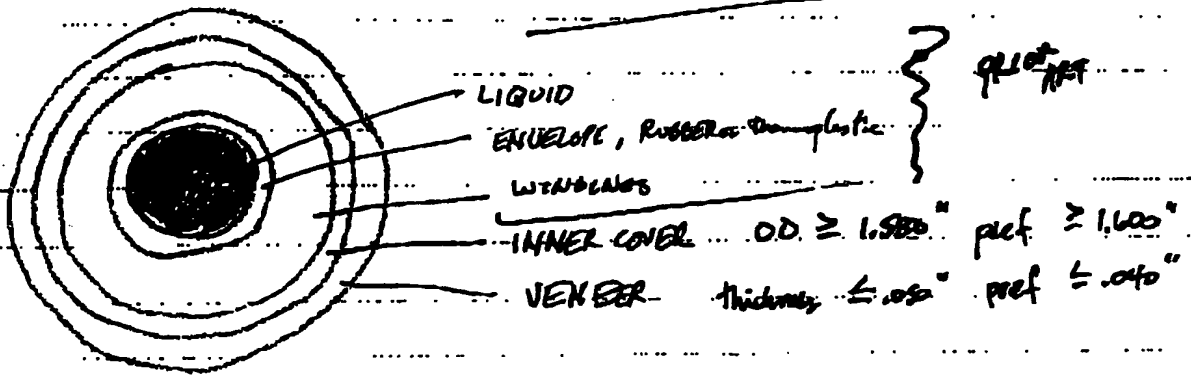 PRIOR ART
LIQUID
ENVELOPE, RUBBER or thermoplastic
WINDINGS
INNER COVER OD ≥ 1.580" pref ≥ 1.600"
VENEER thickness ≤ .050" pref ≤ .040"